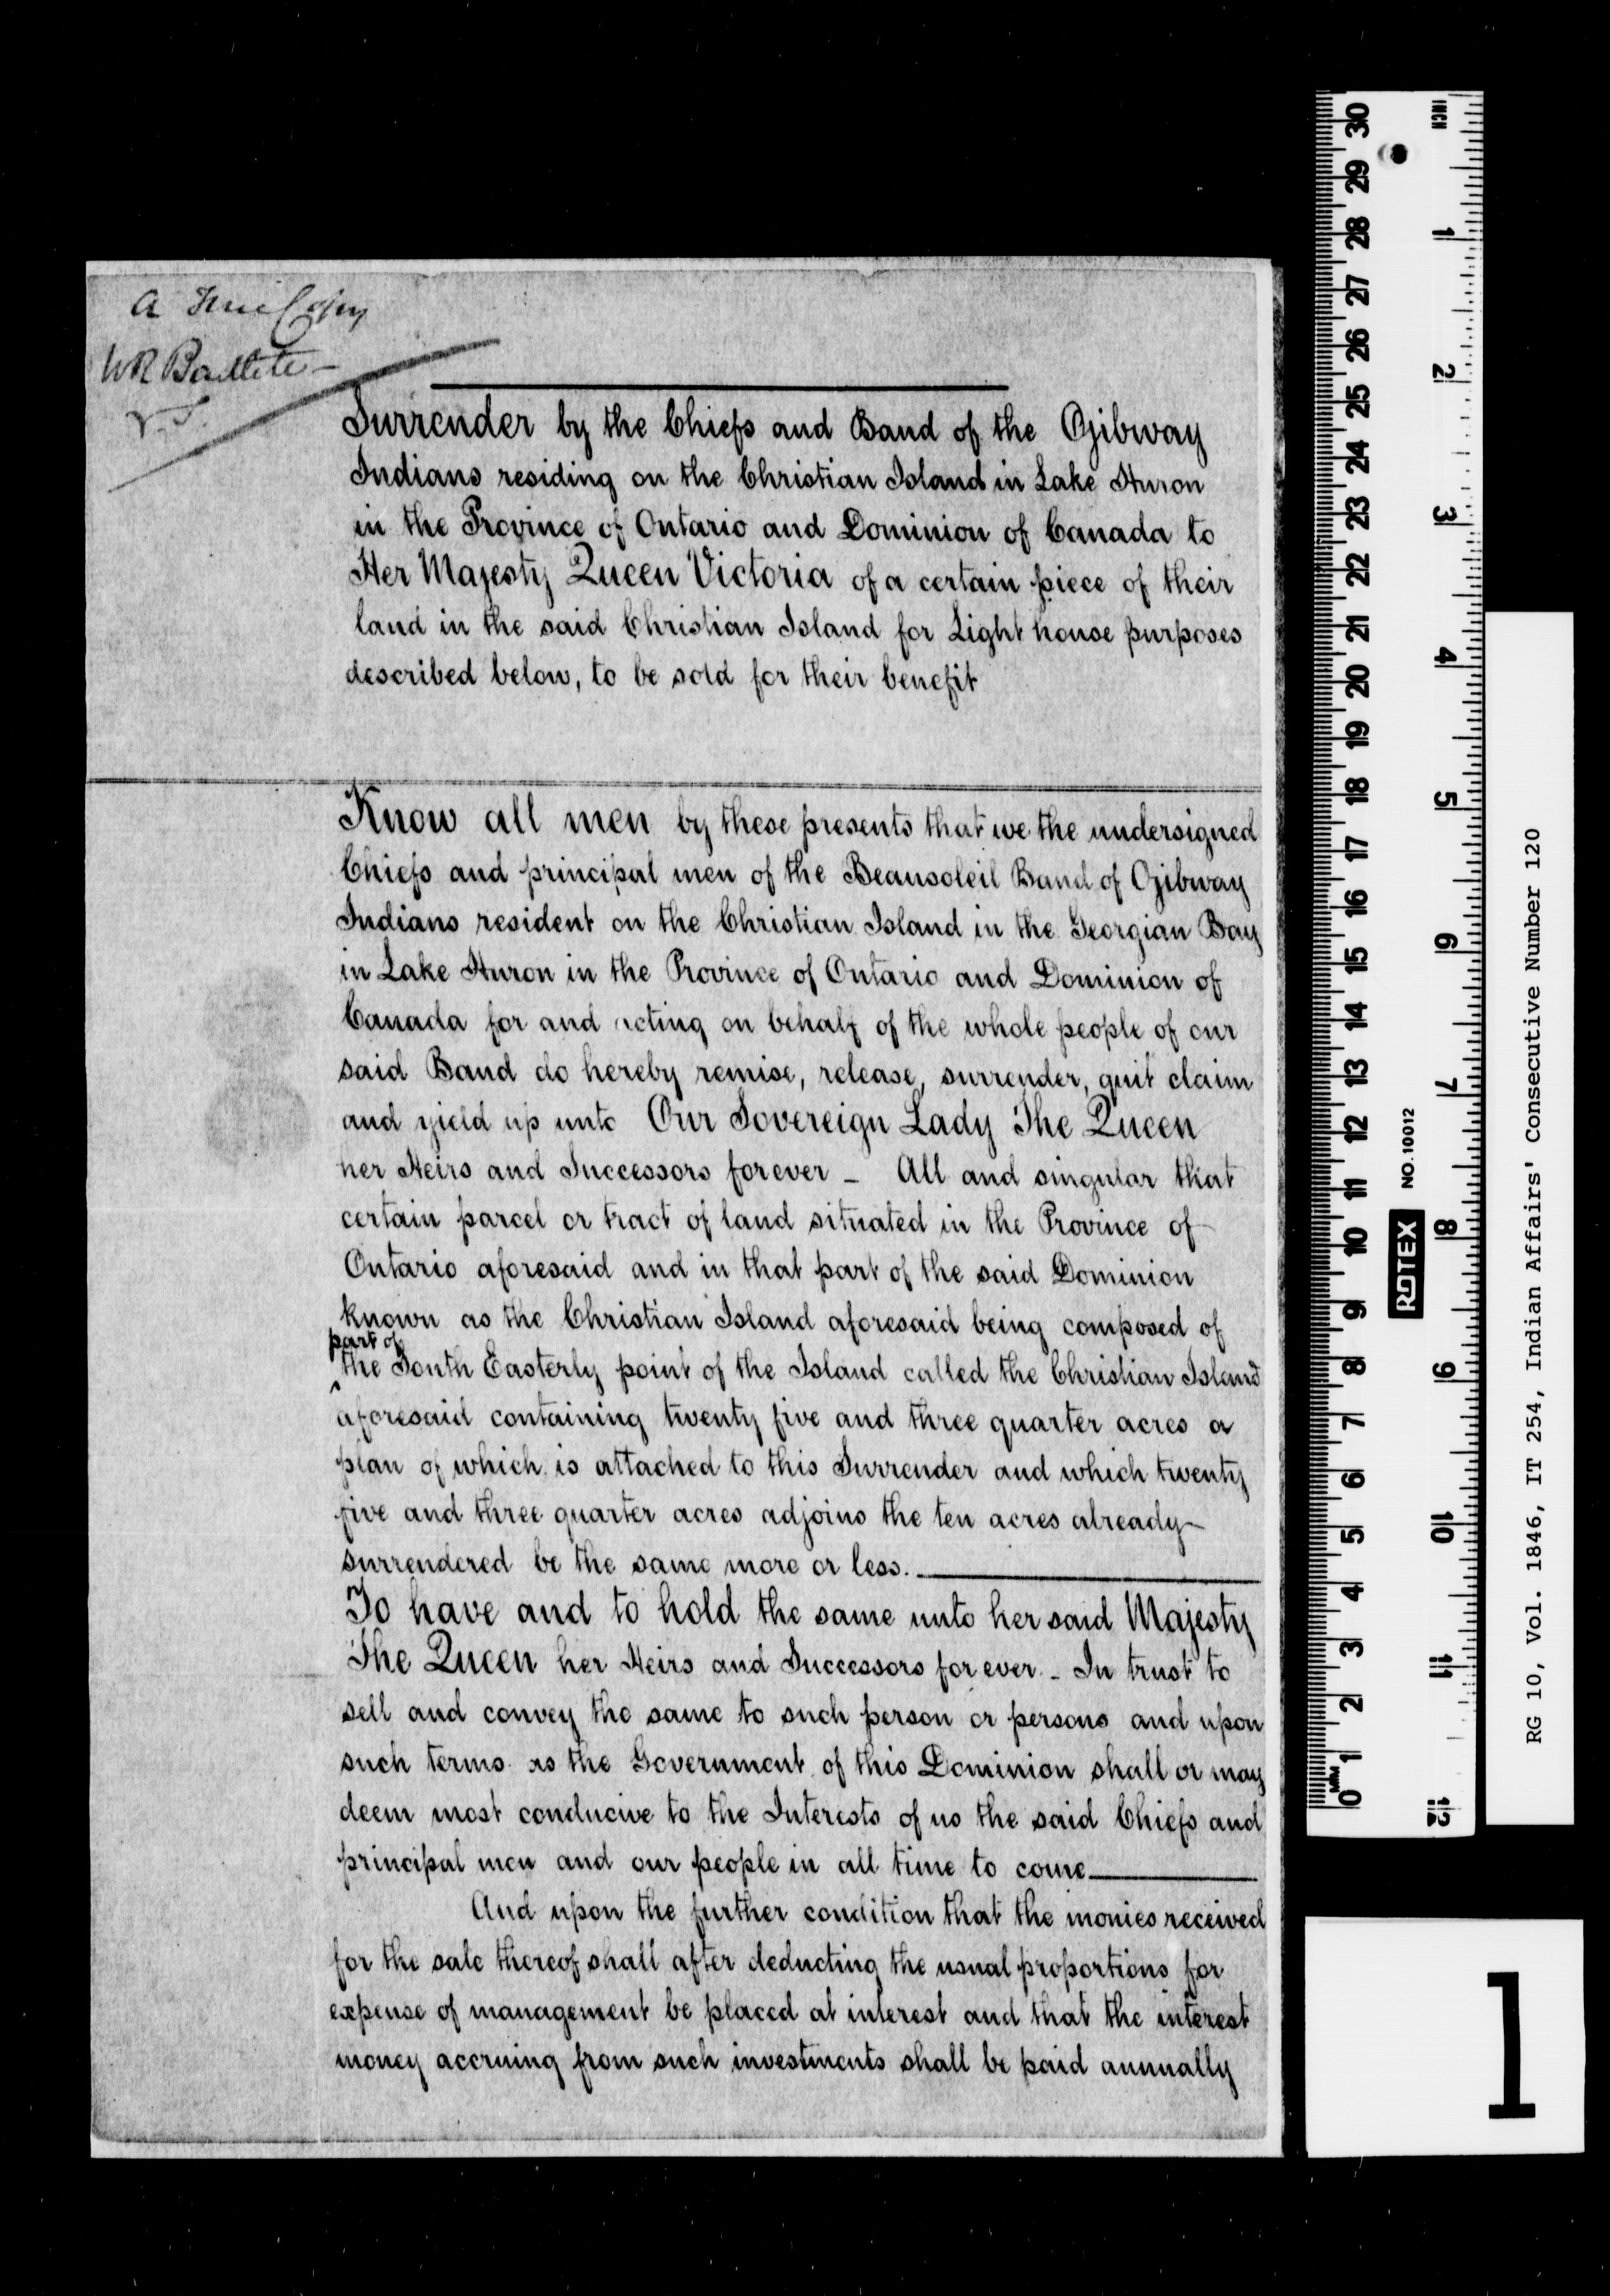 a True Copy
WR Bartlett
V.S.
Surrender by the Chiefs and Band of the Ojibway
Indians residing on the Christian Island in Lake Huron
in the Province of Ontario and Dominion of Canada to
Her Majesty Queen Victoria of a certain piece of their
land in the said Christian Island for Light house purposes
described below, to be sold for their benefit
Know all men by these presents that we the undersigned
Chiefs and principal men of the Beausoleil Band of Ojibway
Indians resident on the Christian Island in the Georgian Bay
in Lake Huron in the Province of Ontario and Dominion of
Canada for and acting on behalf of the whole people of our
said Band do hereby remise, release, surrender, quit claim
and yield up unto Our Sovereign Lady The Queen
her Heirs and Successors forever - All and singular that
certain parcel or tract of land situated in the Province of
Ontario aforesaid and in that part of the said Dominion
known as the Christian Island aforesaid being composed of
part of
^ the South Easterly point of the Island called the Christian Island
aforesaid containing twenty five and three quarter acres a
plan of which is attached to this Surrender and which twenty
five and three quarter acres adjoins the ten acres already
surrendered be the same more or less.
To have and to hold the same unto her said Majesty
The Queen her Heirs and Successors for ever. - In trust to
sell and convey the same to such person or persons and upon
such terms as the Government of this Dominion shall or may
deem most conducive to the Interests of us the said Chiefs and
principal men and our people in all time to come
And upon the further condition that the monies received
for the sale thereof shall after deducting the usual proportions for
expense of management be placed at interest and that the interest
money accruing from such investments shall be paid annually
30 29 28 27 26 25 24 23 22 21 20 19 18 17 16 15 14 13 12 11 10 9 8 7 6 5 4 3 2 1 0
MM
INCH
1 2 3 4 5 6 7 8 9 10 11 12
ROTEX NO. 10012
RG 10, Vol. 1846, IT 254, Indian Affairs' Consecutive Number 120
1